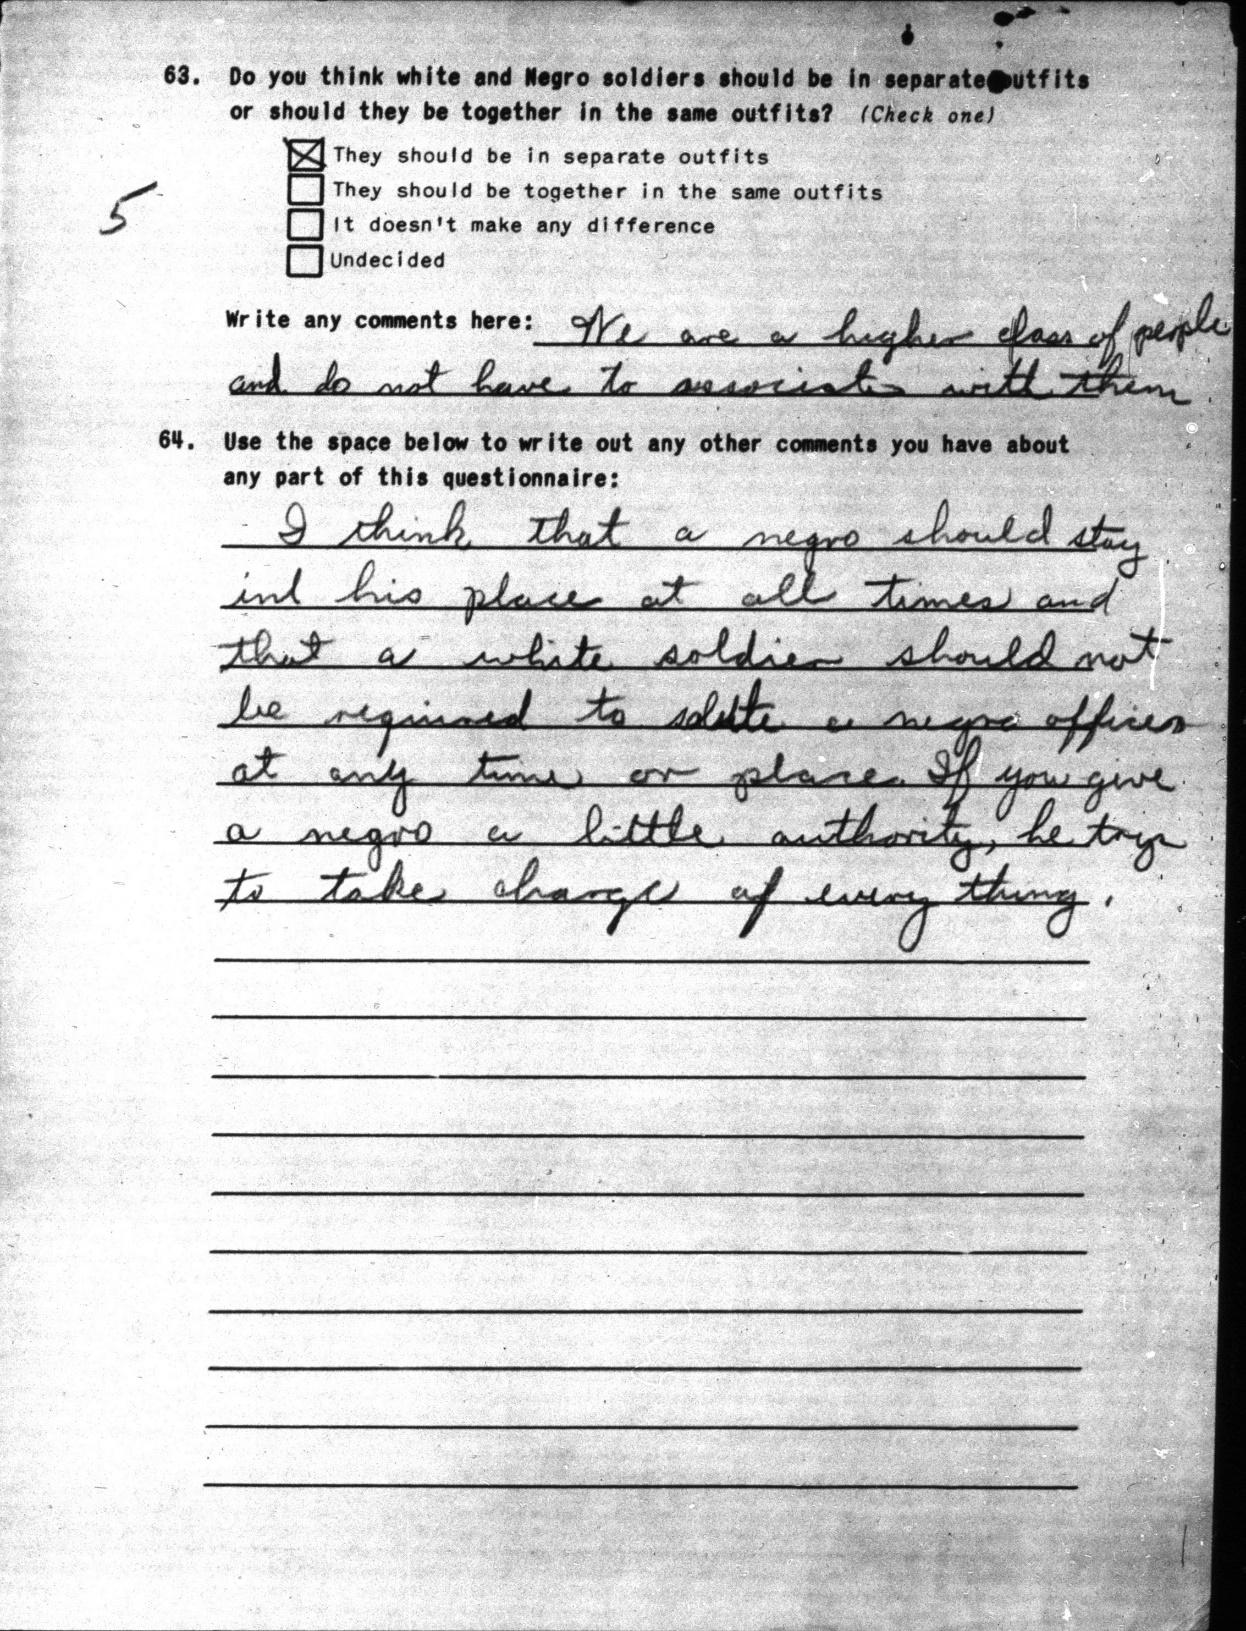 63. Do you think white and Negro soldiers should be in separate outfits
or should they be together in the same outfits? (Check one)
They should be in separate outfits
They should be together in the same outfits
5
It doesn't make any difference
Undecided
Write any comments here: We are a higher class of people
and do not have to associate with them.
64. Use the space below to write out any other comments you have about
any part of this questionnaire:
I think that a negro should stay
in his place at all times and
that a white soldier should not
be required to salute a negro officer
at any time or place. If you give
a negro a little authority, he trys
to take charge of every thing.